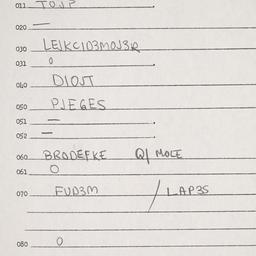 011 TOJP
020 —
030 LEJKCID3MOJ3R
031 0
040 DIOJT
050 PJEGES
051 —
052 —
060 BRODEFKE Q/ MOLE
061 0
070 FUD3M / LAP3S
080 0